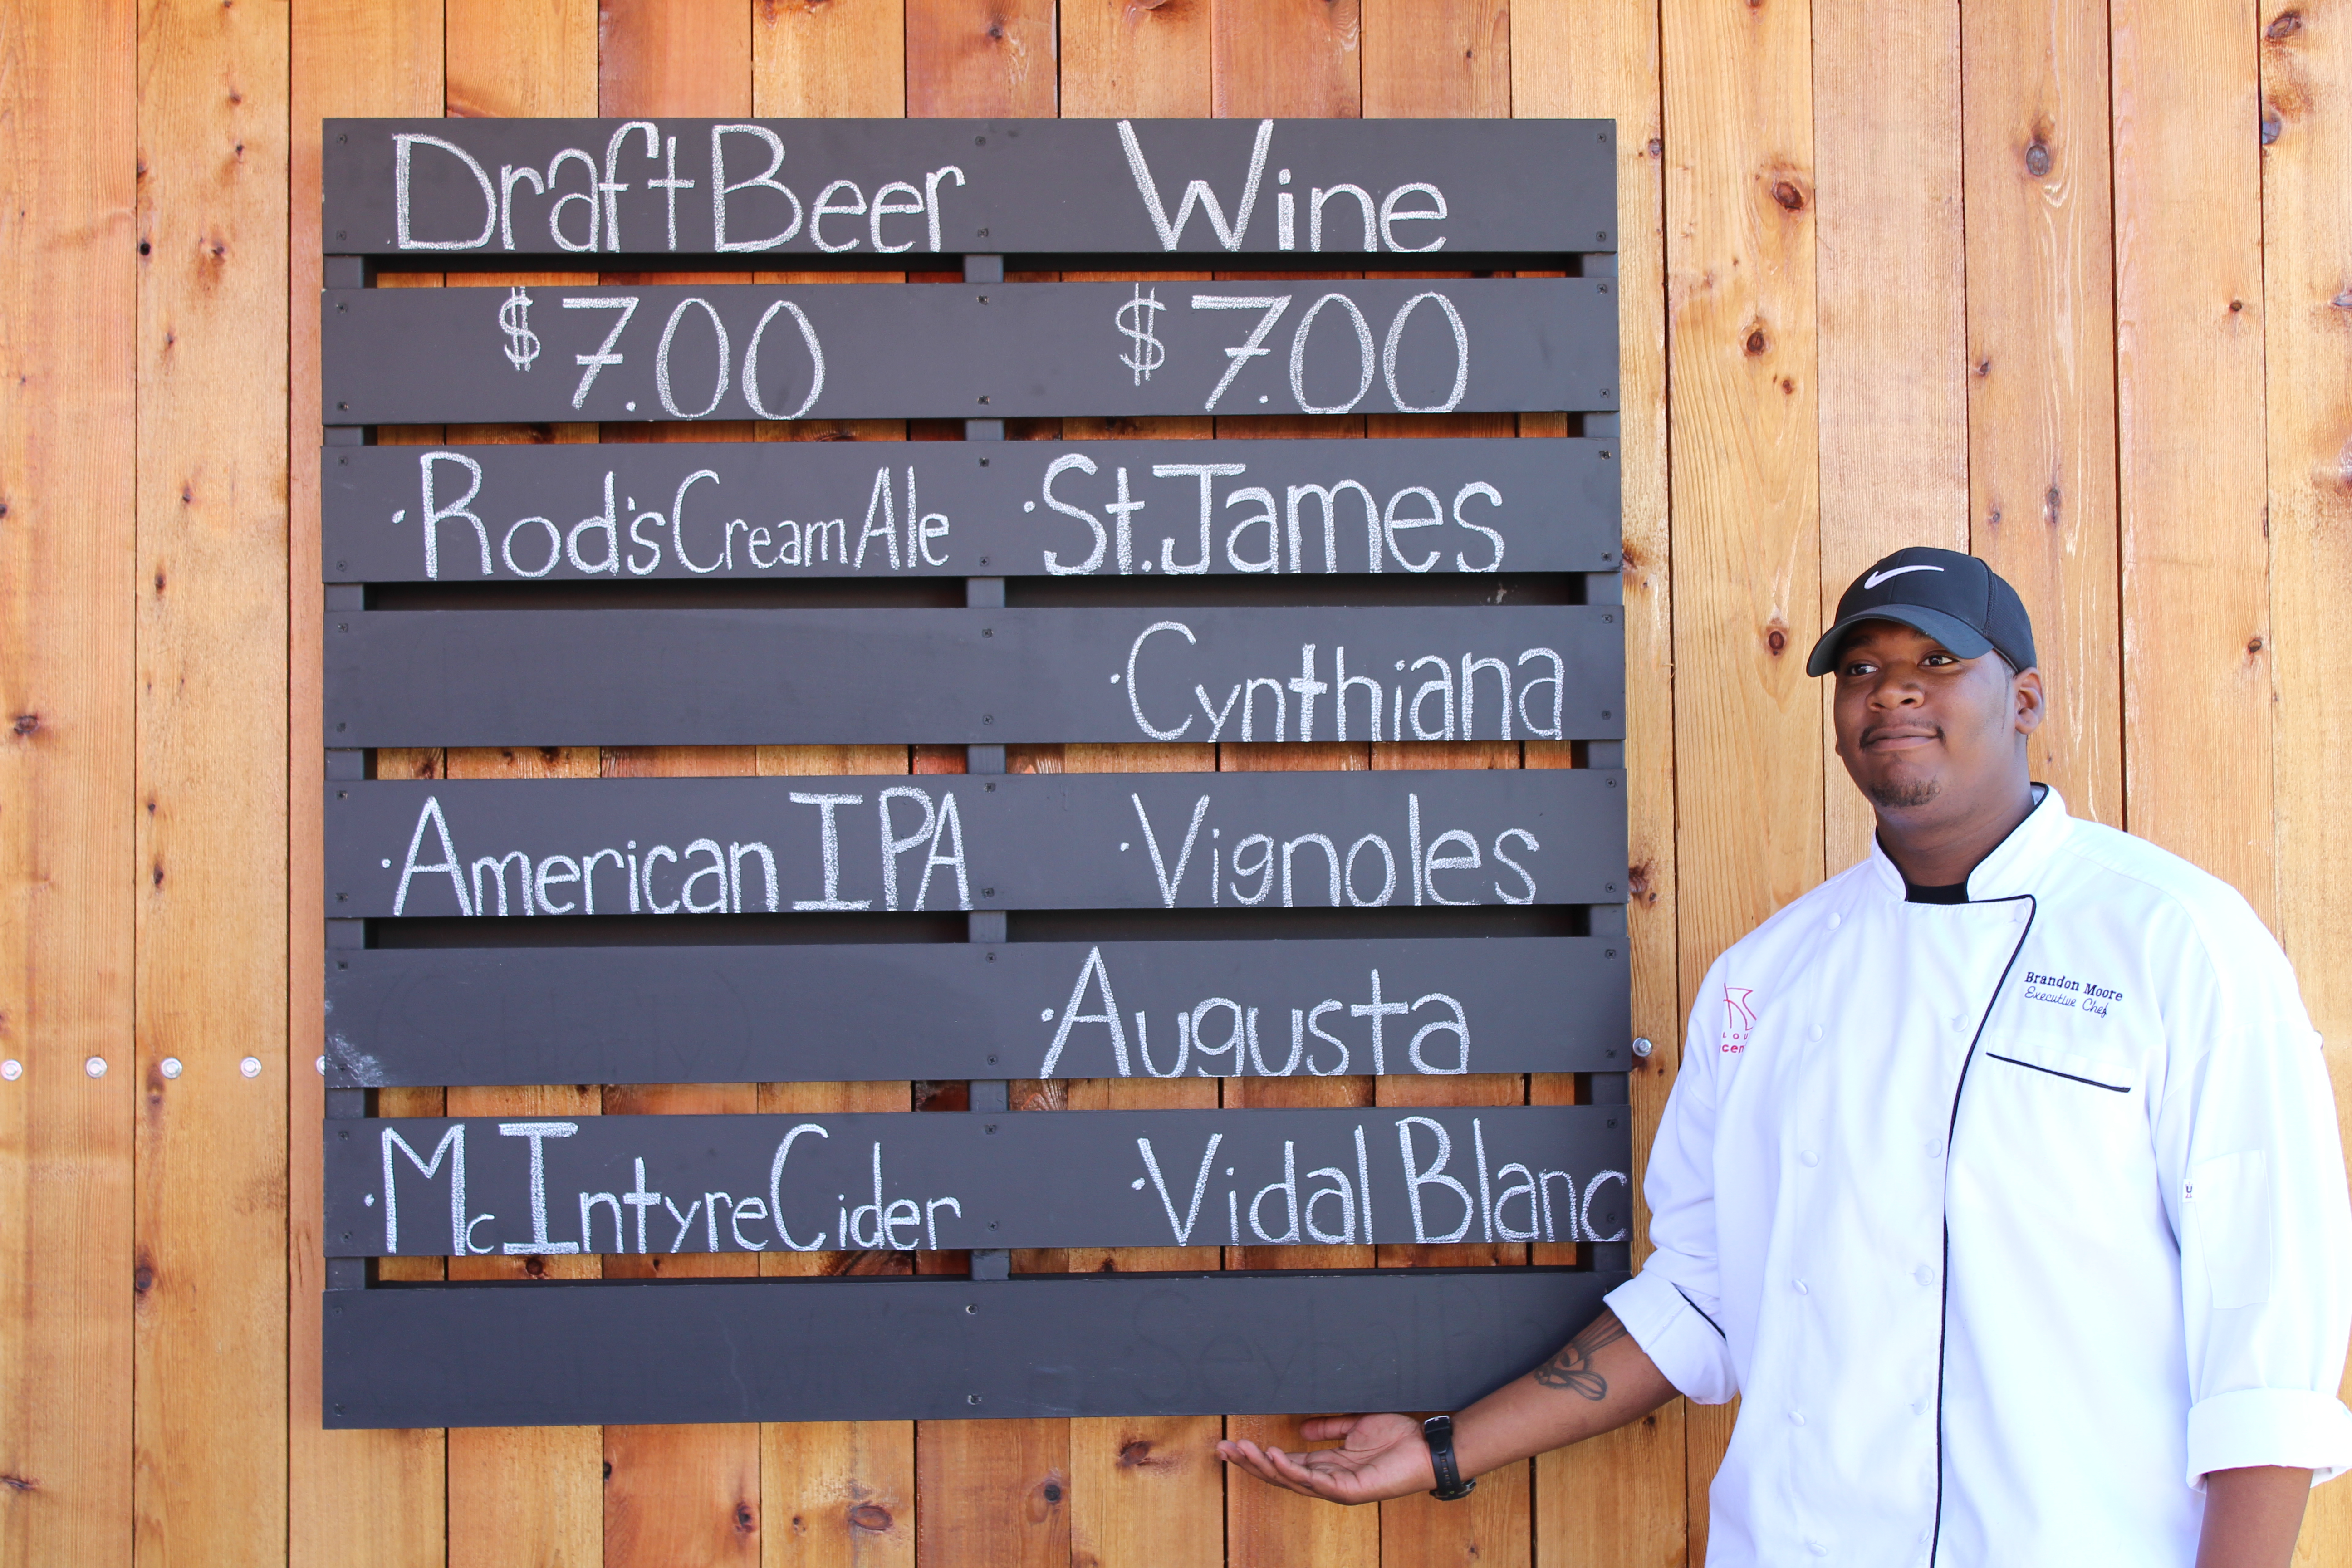 Draft Beer
Wine
$7.00
$7.00
·Rod's Cream Ale
·St. James
·Cynthiana
·American IPA
·Vignoles
·Augusta
·McIntyre Cider
·Vidal Blanc
Brandon Moore
Executive Chef